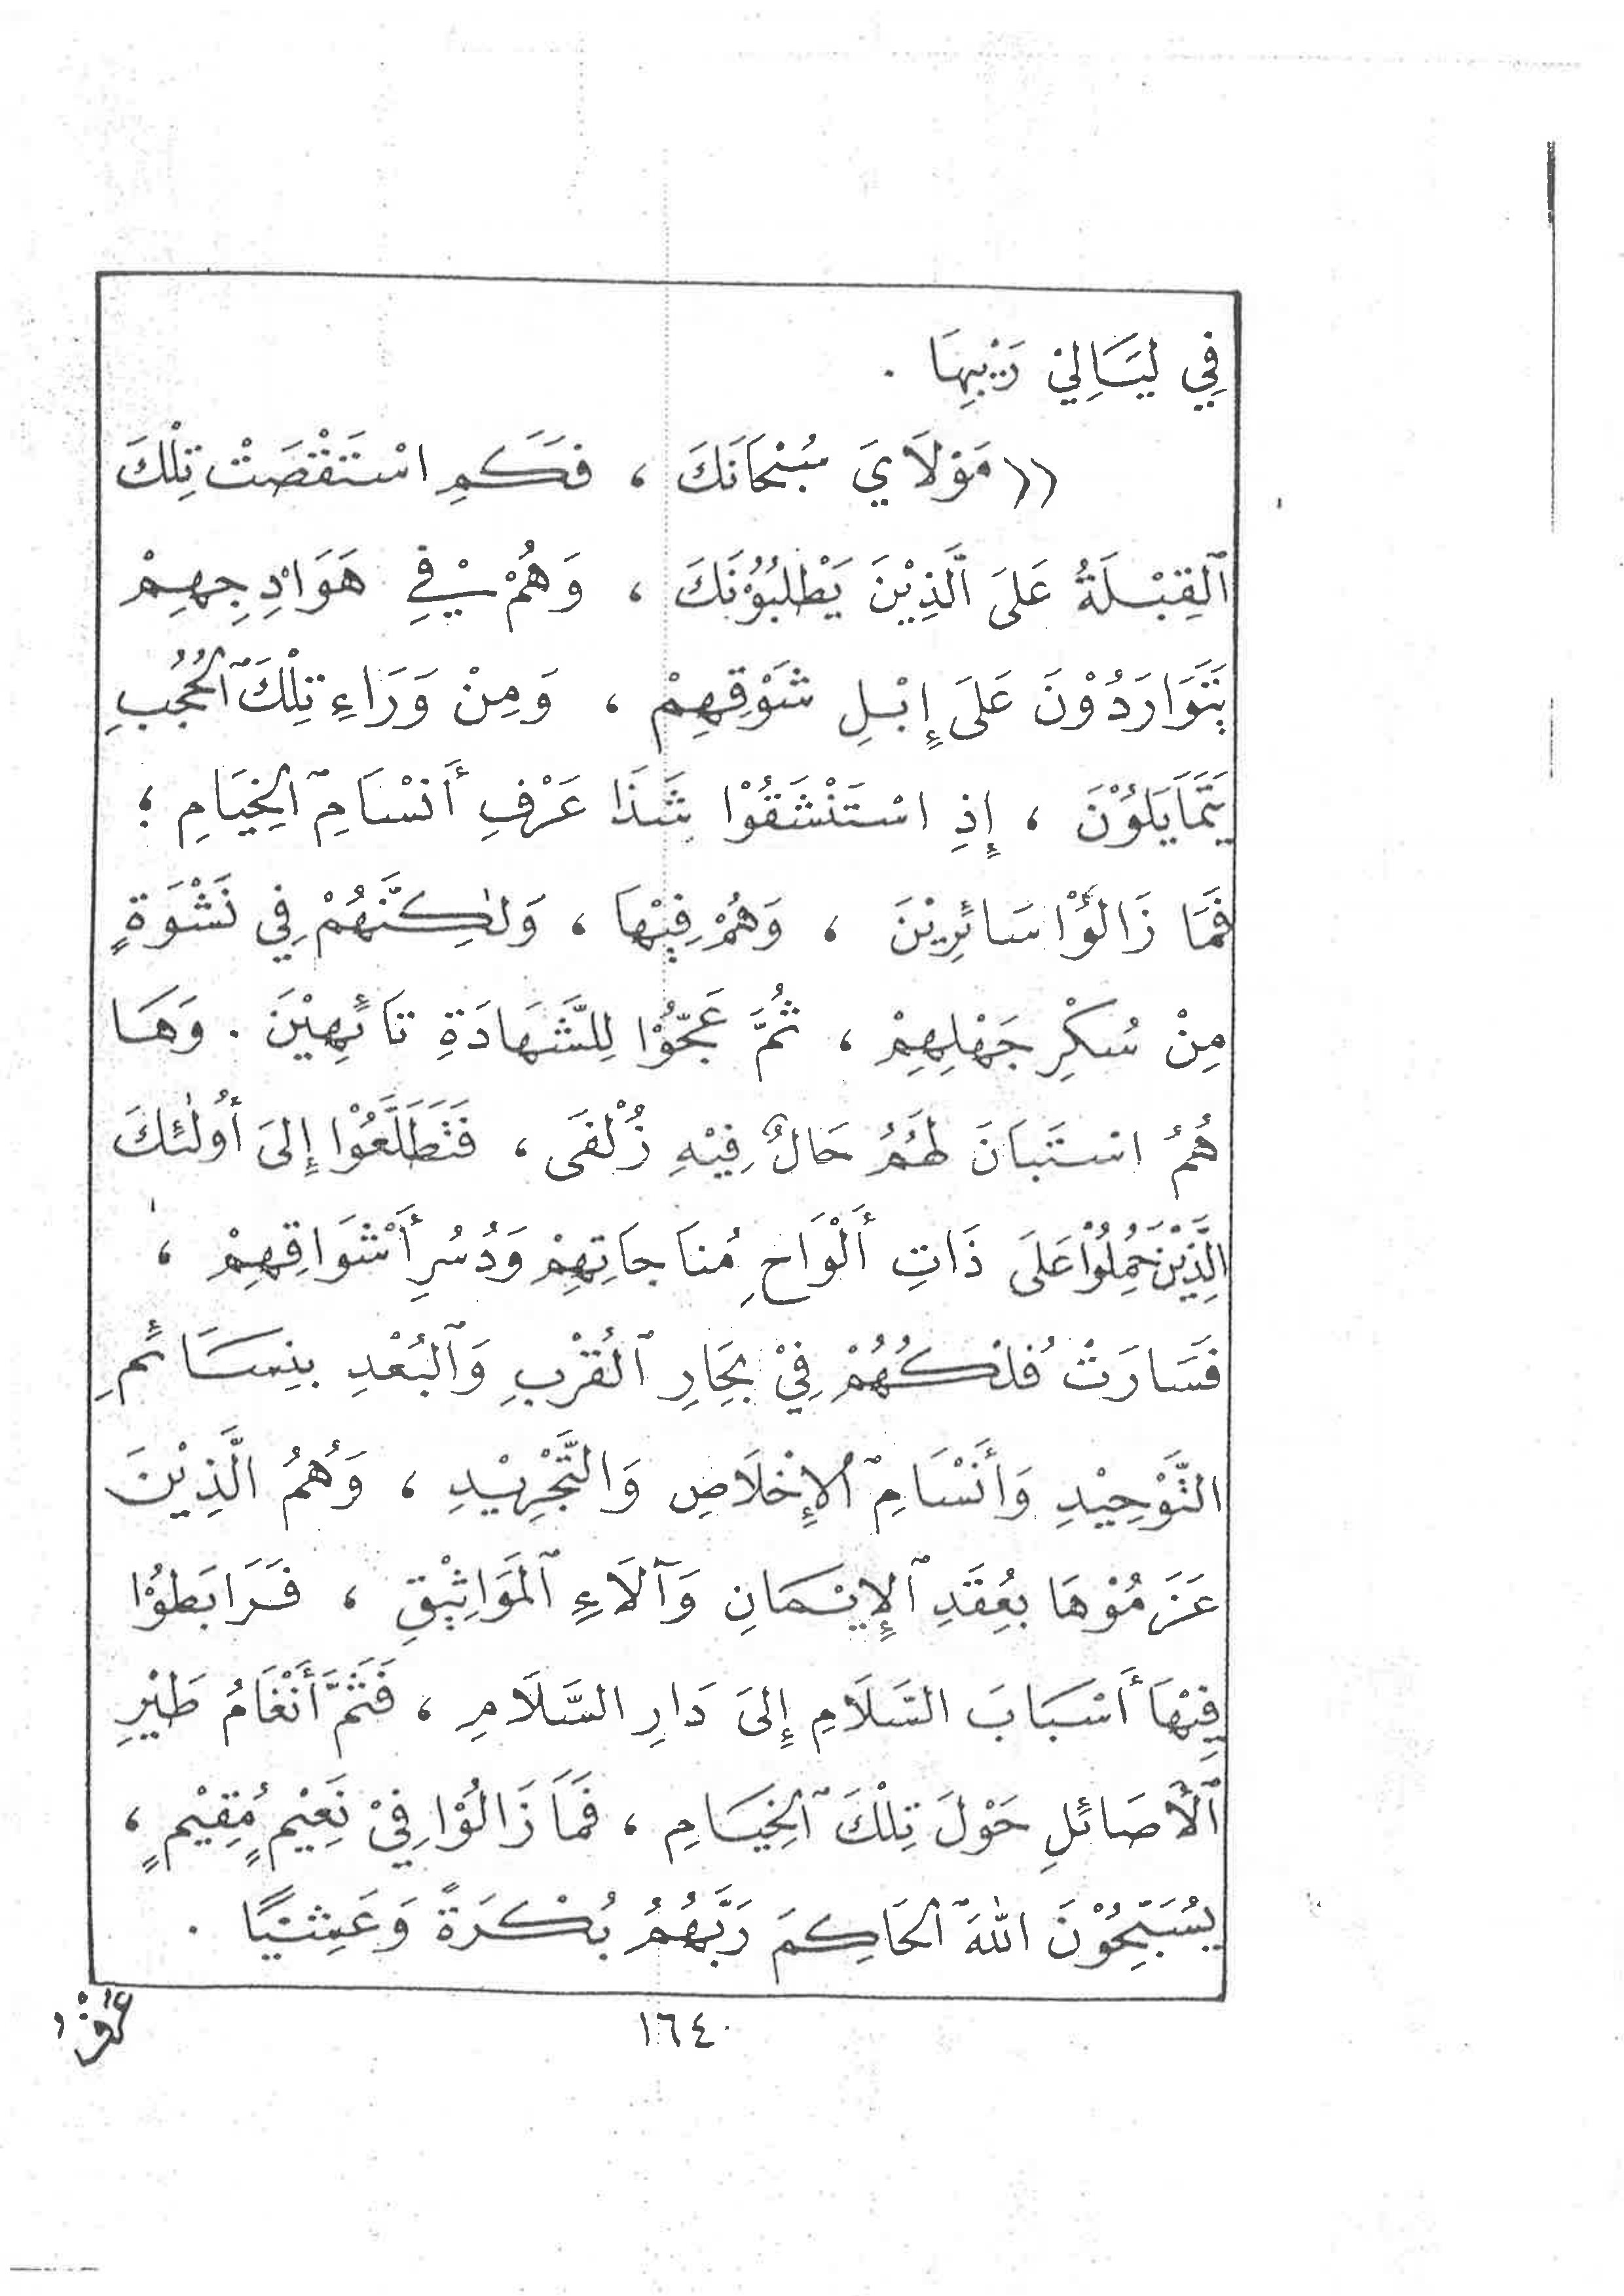 فِي لَيَالِيْ رَيْبِهَا .
(( مَوْلَايَ سُبْحَانَكَ ، فَكَمِ اسْتَنْقَصَتْ تِلْكَ
ٱلْقِبْلَةُ عَلَى الَّذِيْنَ يَطْلُبُوْنَكَ ، وَهُمْ فِي هَوَادِجِهِمْ
يَتَوَارَدُوْنَ عَلَى إِبْلِ شَوْقِهِمْ ، وَمِنْ وَرَاءِ تِلْكَ ٱلْحُجُبِ
يَتَمَايَلُوْنَ ، إِذِ اسْتَنْشَقُوْا شَذَا عَرْفِ أَنْسَامِ ٱلْخِيَامِ ؛
فَمَا زَالُوْا سَائِرِيْنَ ، وَهُمْ فِيْهَا ، وَلٰكِنَّهُمْ فِي نَشْوَةٍ
مِنْ سُكْرِ جَهْلِهِمْ ، ثُمَّ عَجُّوْا لِلشَّهَادَةِ تَائِهِيْنَ . وَهَا
هُمُ اسْتَبَانَ لَهُمُ حَالٌ فِيْهِ زُلْفَى ، فَتَطَلَّعُوْا إِلَى أُوْلٰئِكَ
الَّذِيْنَ حُمِلُوْا عَلَى ذَاتِ أَلْوَاحِ مُنَاجَاتِهِمْ وَدُسُرِ أَشْوَاقِهِمْ ،
فَسَارَتْ فُلْكُهُمْ فِيْ بِحَارِ ٱلْقُرْبِ وَٱلْبُعْدِ بِنَسَائِمِ
التَّوْحِيْدِ وَأَنْسَامِ ٱلْإِخْلَاصِ وَالتَّجْرِيْدِ ، وَهُمُ الَّذِيْنَ
عَزَمُوْهَا بِعُقَدِ ٱلْإِيْمَانِ وَآلَاءِ ٱلْمَوَاثِيْقِ ، فَرَابَطُوْا
فِيْهَا أَسْبَابَ السَّلَامِ إِلَى دَارِ السَّلَامِ ، فَثَمَّ أَنْغَامُ طَيْرِ
ٱلْأَصَائِلِ حَوْلَ تِلْكَ ٱلْخِيَامِ ، فَمَا زَالُوْا فِيْ نَعِيْمٍ مُقِيْمٍ ،
يُسَبِّحُوْنَ اللهَ ٱلْحَاكِمَ رَبَّهُمُ بُكْرَةً وَعَشِيًّا .
١٦٤